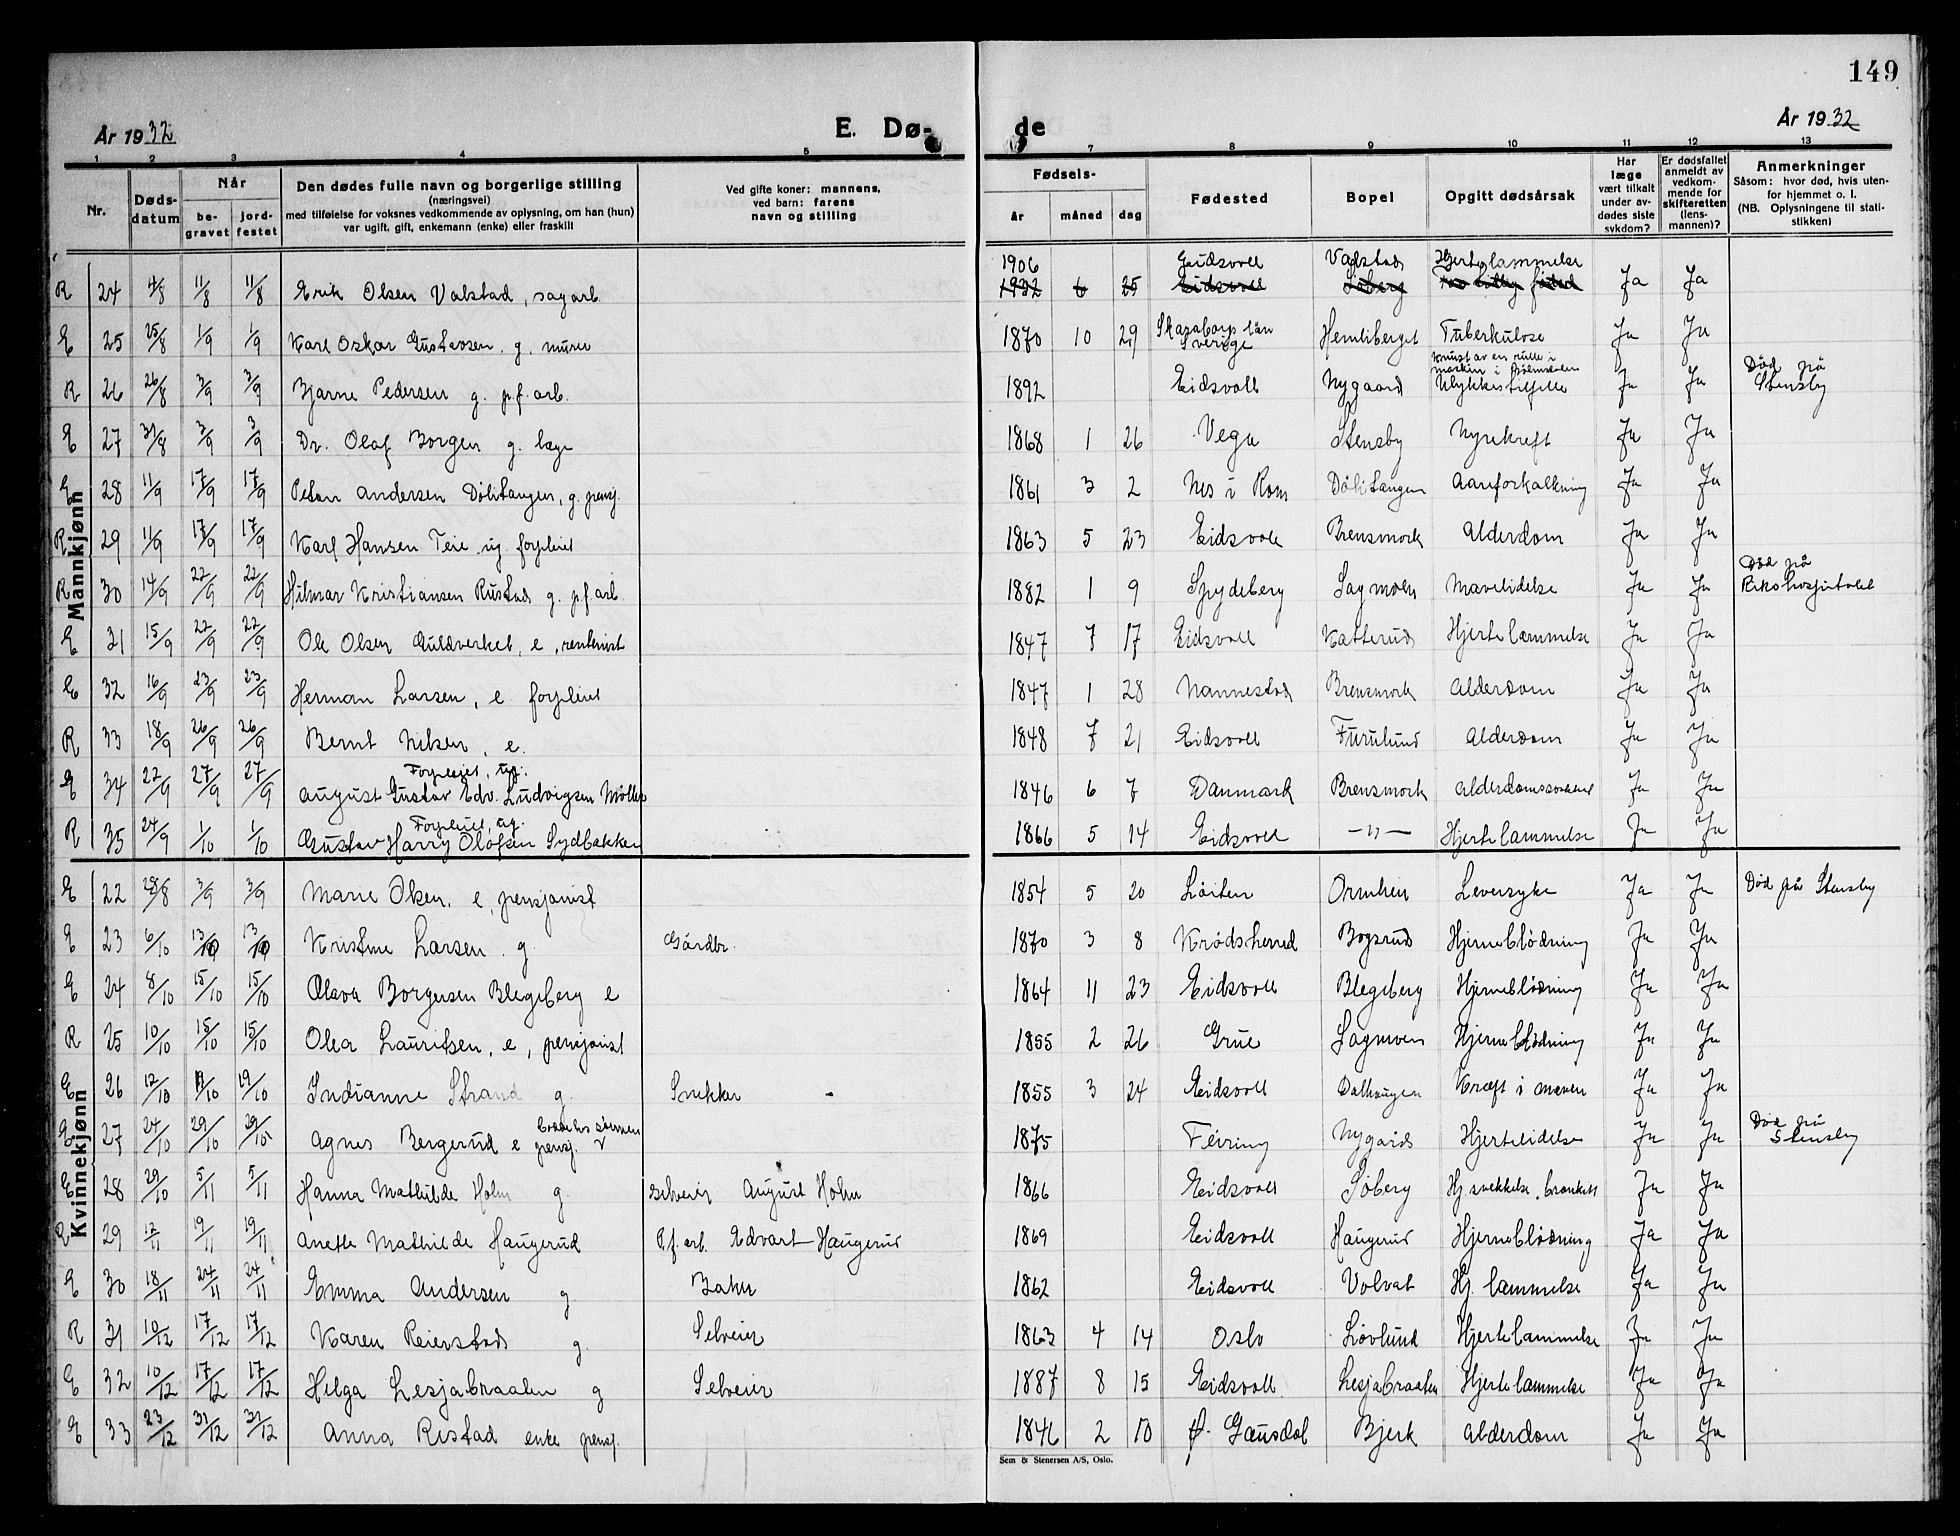 149
År 1932 E. Dø- de År 1932
1 2 3 4 5 7 8 9 10 11 12 13
Nr. Døds-datum Når be-gravet jord-festet Den dødes fulle navn og borgerlige stilling (næringsvei) med tilføielse for voksnes vedkommende av oplysning, om han (hun) var ugift, gift, enkemann (enke) eller fraskilt Ved gifte koner: mannens, ved barn: farens navn og stilling Fødsels- år måned dag Fødested Bopel Opgitt dødsårsak Har læge vært tilkalt under av-dødes siste sykdom? Er dødsfallet anmeldt av vedkom-mende for skifteretten (lens-mannen)? Anmerkninger Såsom: hvor død, hvis uten-for hjemmet o. l. (NB. Oplysningene til stati-stikken)
Mannkjønn
1906 Eidsvoll Valstad Hjertelammelse
R 24 4/8 11/8 11/8 Erik Olsen Valstad, sagarb. 1932 6 25 Eidsvoll Söberg Ja Ja
E 25 25/8 1/9 1/9 Karl Oskar Gustavsen. g. murer 1870 10 29 Skaraborgs län Sverige Hemliberget Tuberkulose Ja Ja
R 26 26/8 3/9 3/9 Bjarne Pedersen g. p.f. arb. 1892 Eidsvoll Nygaard Knust av en rulle i Ulykkestilfelle Ja Ja Død på Stensby
E 27 31/8 3/9 3/9 Dr. Olaf Borgen g. læge 1868 1 26 Vega Stensby Nyrekreft Ja Ja
E 28 11/9 17/9 17/9 Peter Andersen Dölitangen, g. pensj. 1861 3 2 Nes i Rom Dölitangen Aareforkalkning Ja Ja
R 29 11/9 17/9 17/9 Karl Hansen Teie ug. forpleiet 1863 5 23 Eidsvoll Brensmork Alderdom Ja Ja
R 30 14/9 22/9 22/9 Hilmar Kristiansen Rustad g. p.f arb. 1882 1 9 Spydeberg Sagmoen Mavelidelse Ja Ja Død på Rikshospitalet
E 31 15/9 22/9 22/9 Ole Olsen Guldverket, e, rentenist 1847 7 17 Eidsvoll Katterud Hjertelammelse Ja Ja
E 32 16/9 23/9 23/9 Herman Larsen, e. forpleiet 1847 1 28 Nannestad Brensmork Alderdom Ja Ja
R 33 18/9 26/9 26/9 Bernt Nilsen, e. 1848 7 21 Eidsvoll Furulund Alderdom Ja Ja
E 34 22/9 27/9 27/9 Forpleiet, ug. August Gustav Edv. Ludvigsen Møller 1846 6 7 Danmark Brensmork Alderdomssvekkel Ja Ja
R 35 24/9 1/10 1/10 Forpleiet, ug. Gustav Harry Olofsen Sydbakken 1866 5 14 Eidsvoll —"— Hjertelammelse Ja Ja
Kvinnekjønn
E 22 28/8 3/9 3/9 Marie Olsen, e, pensjonist 1854 5 20 Löiten Ormlien Leversyke Ja Ja Død på Stensby
E 23 6/10 13/10 13/10 Kristine Larsen g. Gårdbr. 1870 3 8 Krødsherred Bogsrud Hjerneblödning Ja Ja
E 24 8/10 15/10 15/10 Olava Borgersen Blegsberg e 1864 11 23 Eidsvoll Blegsberg Hjerneblödning Ja Ja
R 25 10/10 15/10 15/10 Olea Lauritsen, e, pensjonist 1855 2 26 Grue Sagmoen Hjerneblödning Ja Ja
E 26 12/10 19/10 19/10 Indianne Strand g. Snekker - 1855 3 24 Eidsvoll Dalhaugen Kræft i maven Ja Ja
E 27 24/10 29/10 29/10 Agnes Bergerud e pensj. 1875 Feiring Nygaard Hjertelidelse Ja Ja Død på Stensby
E 28 29/10 5/11 5/11 Hanna Mathilde Holm g. selveier August Holm 1866 Eidsvoll Söberg Hj svekkelse, bronkitt Ja Ja
R 29 12/11 19/11 19/11 Anette Mathilde Haugerud P.f. arb. Edvart Haugerud 1869 Eidsvoll Haugerud Hjerneblödning Ja Ja
E 30 18/11 24/11 24/11 Emma Andersen g. Baker 1862 Eidsvoll Volvat Hj. lammelse Ja Ja
R 31 10/12 17/12 17/12 Karen Reierstad g. Selveier 1863 4 14 Oslo Lövlund Hjertelammelse Ja Ja
E 32 10/12 17/12 17/12 Helga Lesjabraaten g Selveier 1887 8 15 Eidsvoll Lesjabraaten Hjertelammelse Ja Ja
E 33 23/12 31/12 31/12 Anna Ristad enke pensj. 1846 2 10 Ø. Gausdal Bjerk Alderdom Ja Ja
Sem & Stenersen A/S, Oslo.